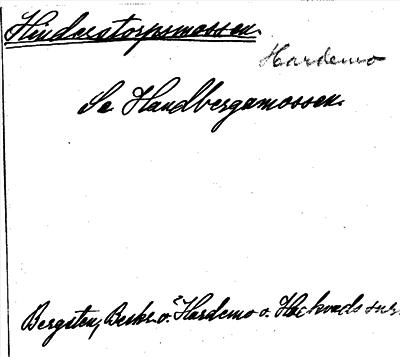 Hinderstorpsmossen.
Hardemo
Se Handbergamossen.
Bergsten, Beskr. o. Hardemo o. Hackvads snr.